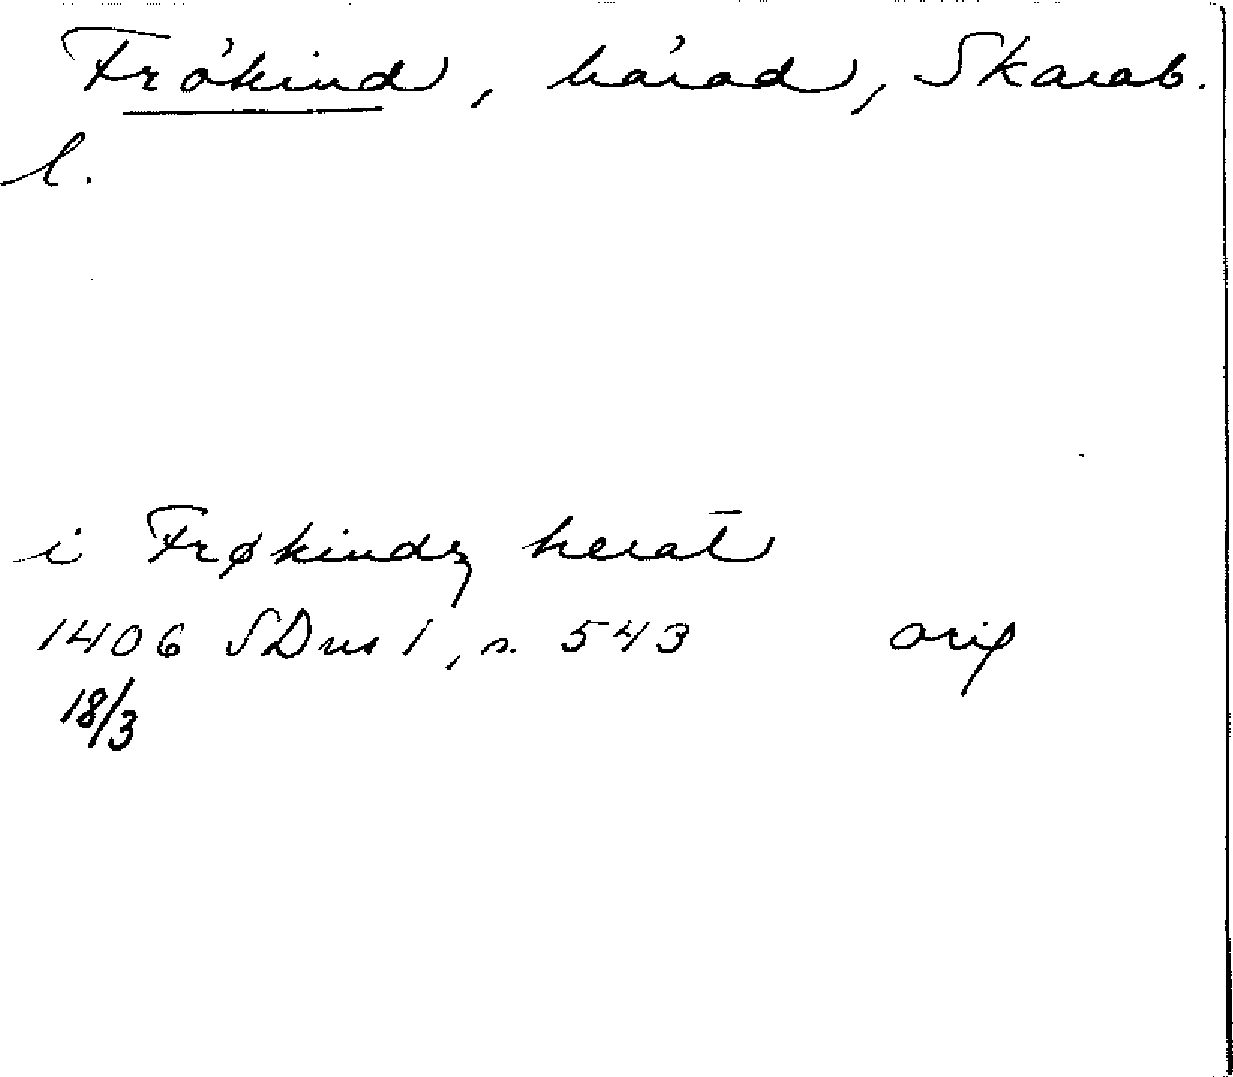 Frökind, härad, Skarab.
l.
i Frøkindz herat̄
1406 SDns 1, s. 543 orig
18/3